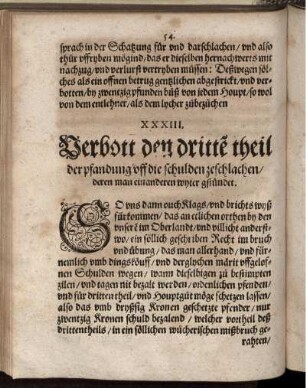 54.
sprach in der Schatzung für vnd darschlachen/ vnd also
thür vffryben mögind/ das er dieselben hernachwerts mit
nachzüg/ vnd verlurst vertryben müssen: Deßwegen söl-
ches als ein offnen betrug gentzlichen abgestrickt/ vnd ver-
botten/ by zwentzig pfunden büß von jedem Houpt/ so wol
von dem entlehner/ als dem lycher zübezüchen
XXXIII.
Verbott den dritte theil
der pfandung vff die schulden zeschlachen/
deren man einanderen wyter gstündet.
SO vns dann ouch Klags/ vnd brichts wyß
fürkommen/ das an etlichen orthen by den
vnserē im Oberlandt/ vnd villicht anderst-
wo/ ein söllich geschriben Recht im bruch
vnd übung/ das man allerhand/ vnd für-
nemlich vmb dingskőuff/ vnd derglychen märit vffgelof-
fnen Schulden wegen/ wann dieselbigen zů bestimpten
zilen/ vnd tagen nit bezalt werden/ ordenlichen pfenden/
vnd für dritten theil/ vnd Houptgüt möge schetzen lassen/
also das vmb dryssig Kronen geschetzte pfender/ nur
zwentzig Kronen schuld bezalend/ welcher vortheil deß
drittentheils/ in ein söllichen wücherischen mißbruch ge-
rahten/